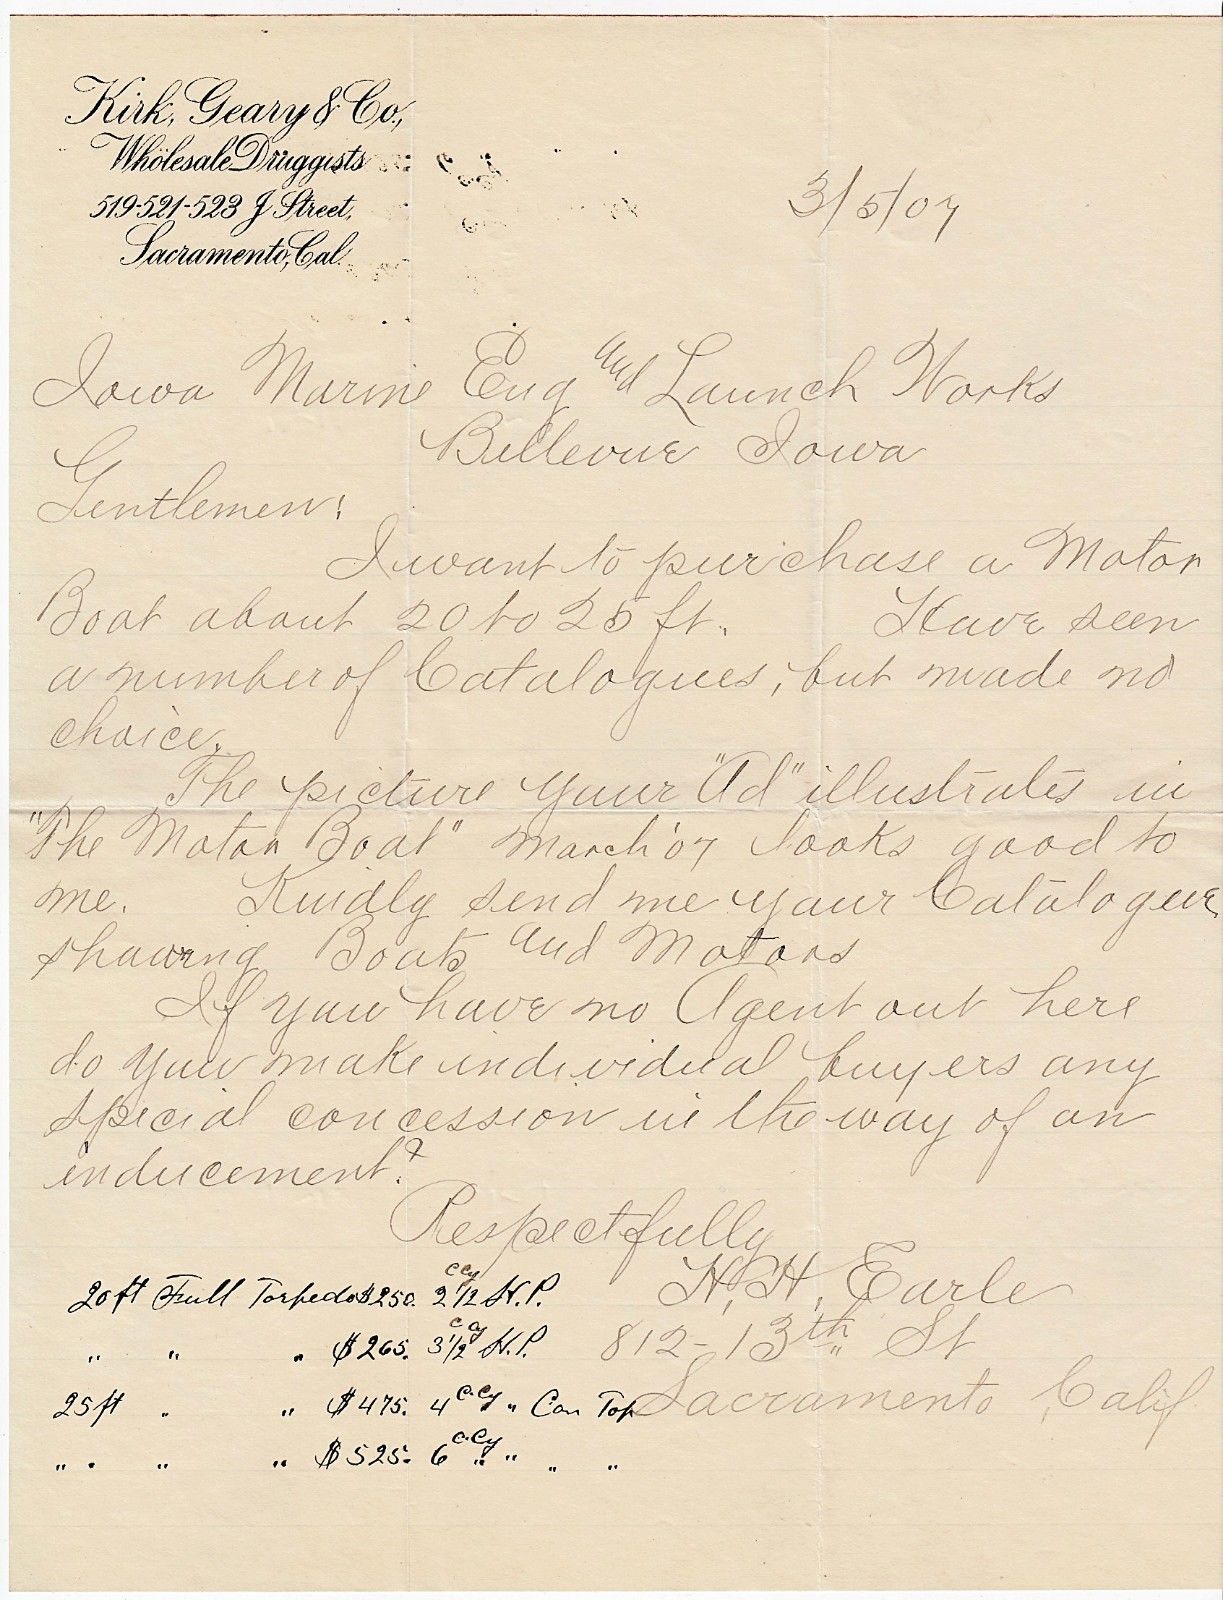 Kirk, Geary & Co.,
Wholesale Druggists
519-521-523 J Street,
Sacramento, Cal.
3/5/07
Iowa Marine Eng and Launch Works
Bellevue Iowa
Gentlemen:
I want to purchase a Motor
Boat about 20 to 25 ft. Have seen
a number of Catalogues, but made no
choice.
The picture your "Ad" illustrates in
"The Motor Boat" March '07 looks good to
me. Kindly send me your Catalogue
showing Boats and Motors
If you have no Agent out here
do you make individual buyers any
special concession in the way of an
inducement?
Respectfully
H. H. Earle
812-13th St
Sacramento, Calif
20 ft Full Torpedo $250. 2 1/2 H.P.
" " " $265. 3 1/2 H.P.
25 ft " " $475. 4 " Can Top
" " " " $525. 6 " " " "